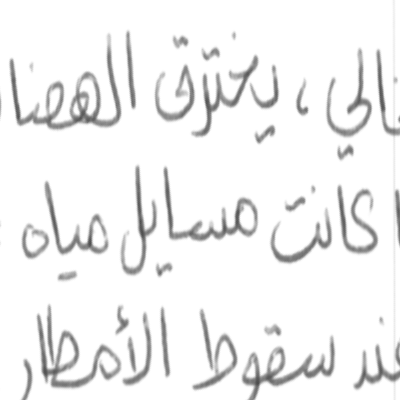 يخترق الهضا
كانت مسايل مياه
عند سقوط الأمطار